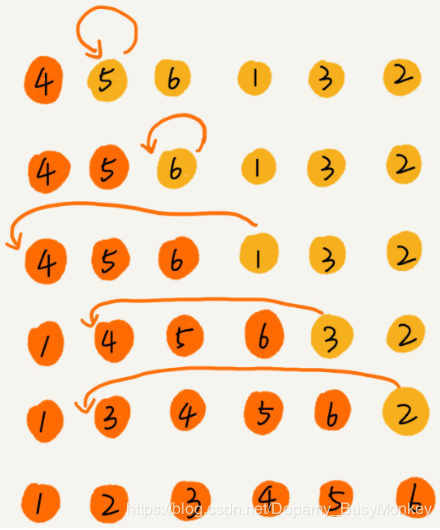 4 5 6 1 3 2
4 5 6 1 3 2
4 5 6 1 3 2
1 4 5 6 3 2
1 3 4 5 6 2
1 2 3 4 5 6
https://blog.csdn.net/Dopamy_BusyMonkey